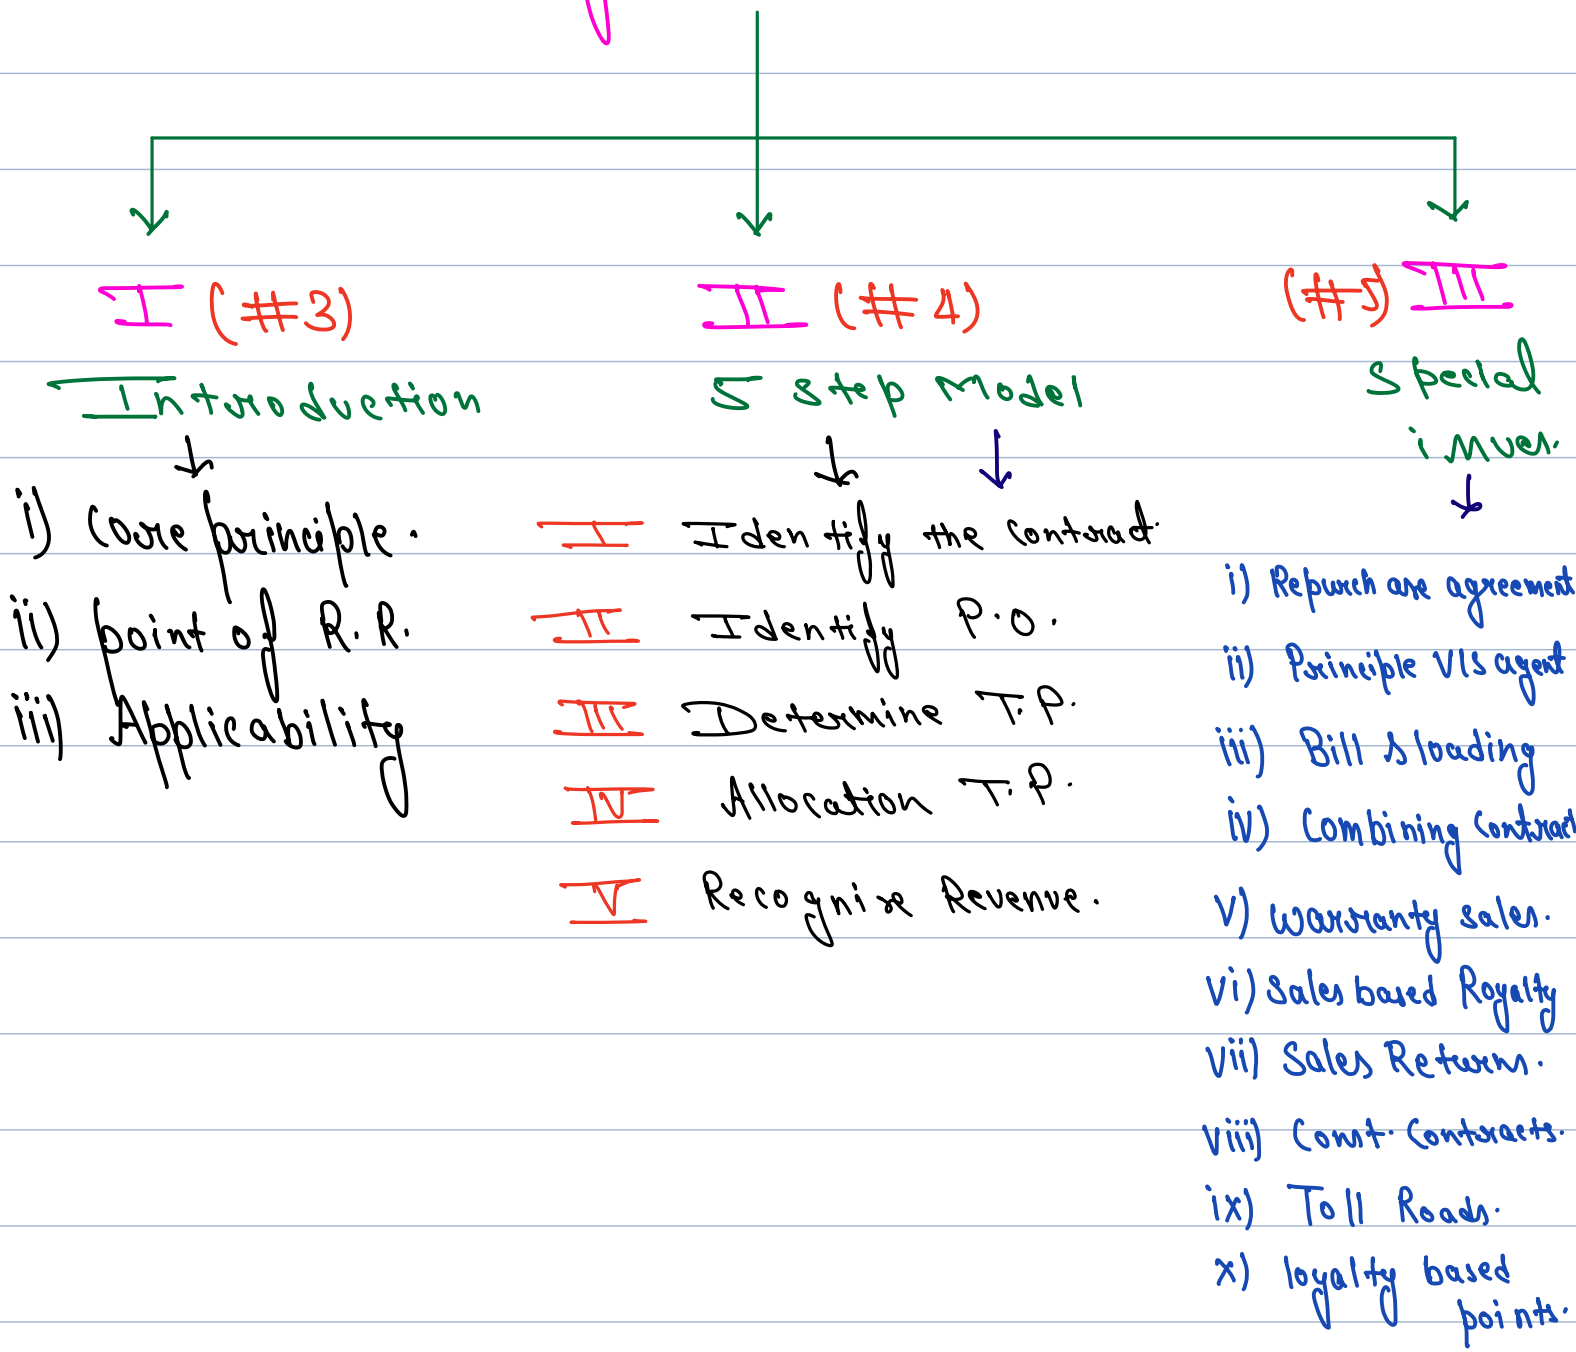 I (#3)
Introduction
i) Core principle.
ii) point of R.R.
iii) Applicability
II (#4)
5 Step Model
I Identify the Contract
II Identify P.O.
III Determine T.P.
IV Allocation T.P.
V Recognise Revenue.
(#5) III
Special
issues.
i) Repurchase agreement
ii) Principle V/s agent
iii) Bill & loading
iv) Combining Contract
v) warranty sales.
vi) Sales based Royalty
vii) Sales Return.
viii) Const. Contracts.
ix) Toll Roads.
x) loyalty based
points.